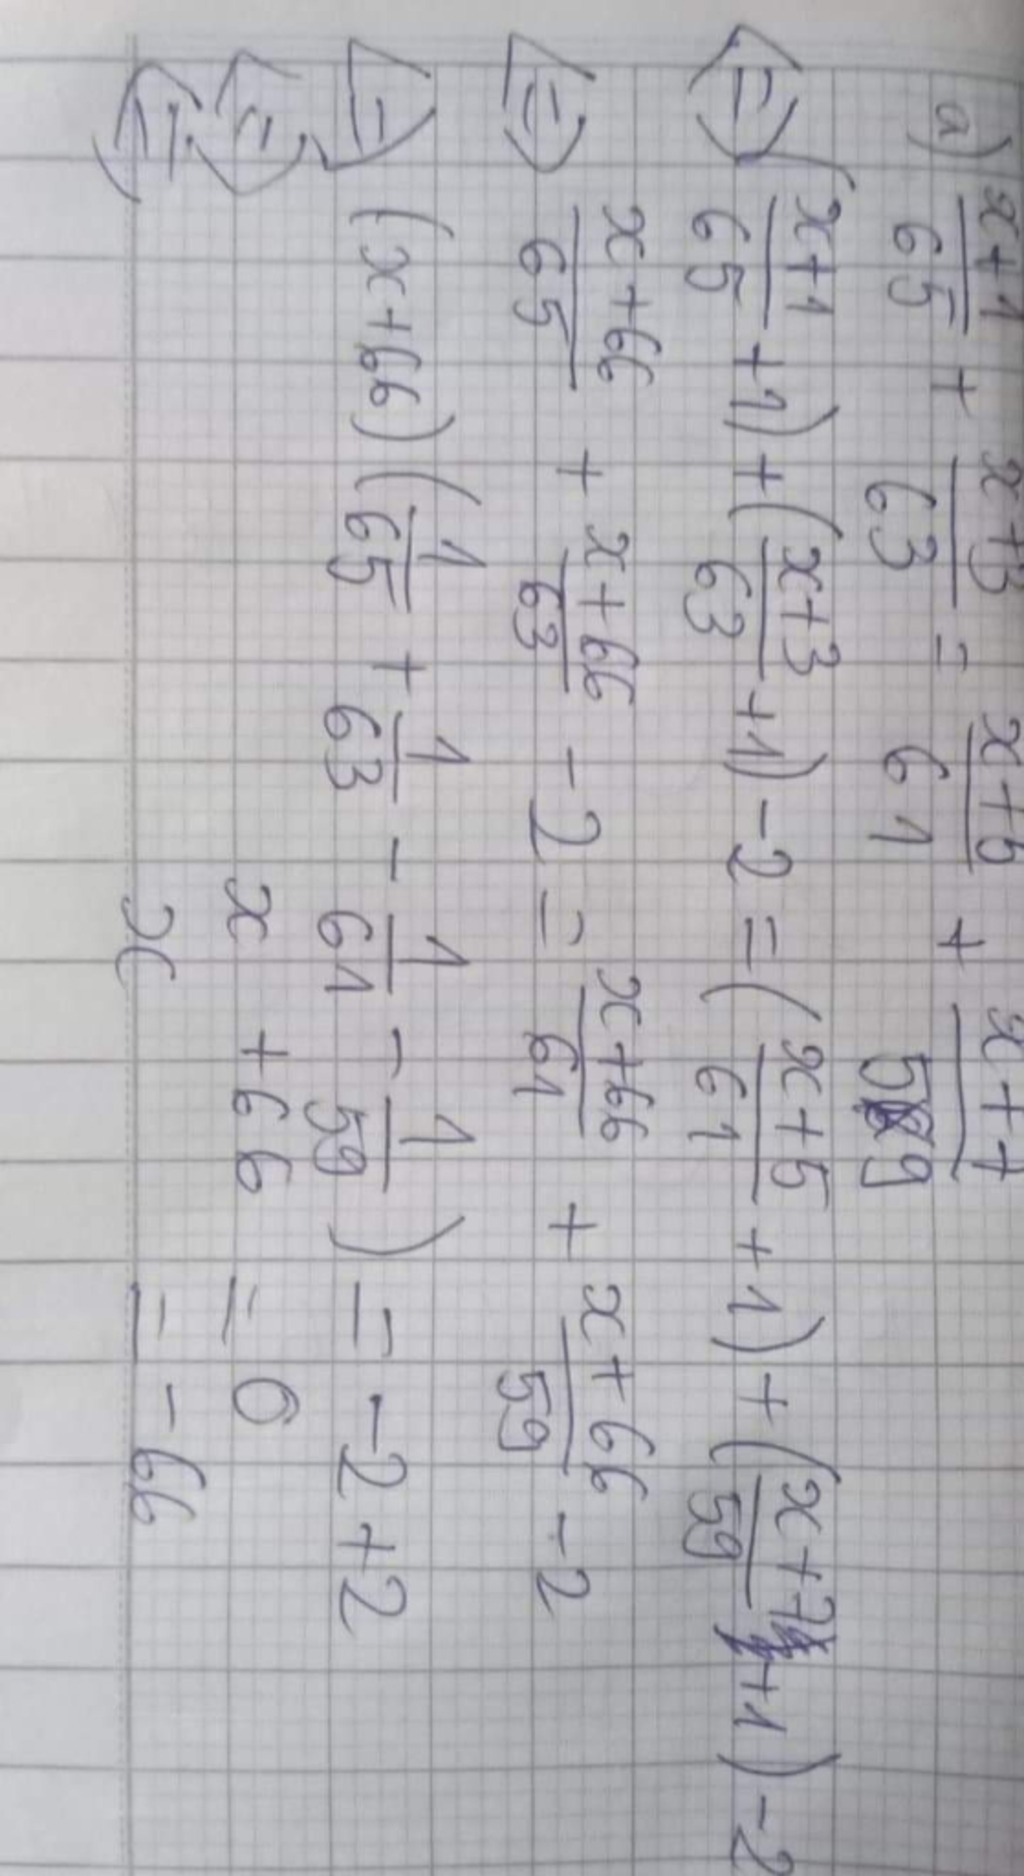 a) x+1/65 + x+3/63 = x+5/61 + x+7/59
<=> (x+1/65 +1) + (x+3/63 +1) - 2 = (x+5/61 +1) + (x+7/59 +1) - 2
<=> x+66/65 + x+66/63 - 2 = x+66/61 + x+66/59 - 2
<=> (x+66) (1/65 + 1/63 - 1/61 - 1/59) = -2 + 2
<=> x + 66 = 0
<=> x = -66